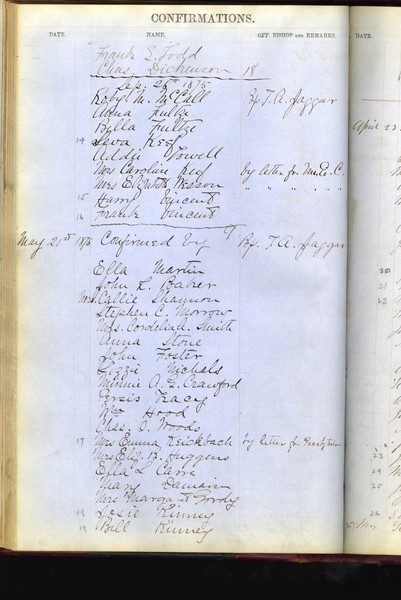 CONFIRMATIONS.
DATE. NAME. OFF. BISHOP AND REMARKS. DATE.
Frank S. Todd
Chas. Dickenson 18
Sep. 28th 1875
Robt M. McCall Bp T. A. Jaggar
Anna Fultze
Bella Fultze April 23
14 Leva Keef
Addie Powell
Mrs Caroline Keef by letter fr M. E. C.
Mrs Elizabeth Weason " " " " "
15 Harry Vincent
16 Frank Vincent
9
May 21st 1876 Confirmed by Bp. T. A. Jaggar
Ella Martin 20
John R. Baker 21
Mrs. Callie Shannon 22
Stephen C. Morrow
Mrs. Cordelia A. Smith
Anna Stone
John Foster
Lizzie Nichals
Minnie A. G. Crawford
Persis Tracy
Wm Hood
Chas. O. Woods
17 Mrs Emma Reickback by letter fr. Presbyterian
Mrs Eliz. R. Huggins 23
Ella L Carr 24
Mary Damain 25
Mrs Margaret Gordy
18 Josie Kinney 26
19 Bill Kinney 27 Mrs